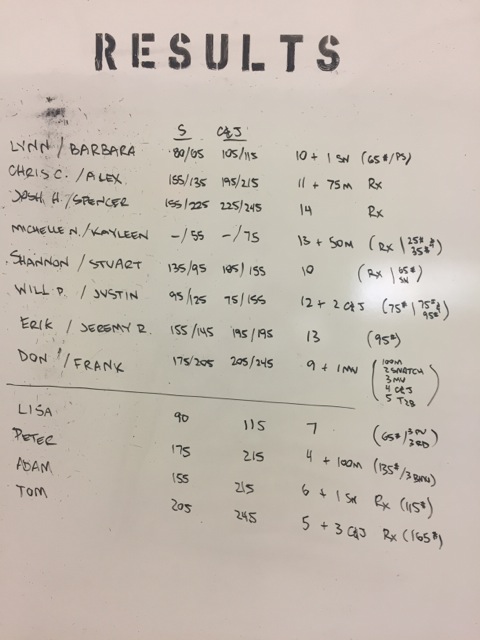 RESULTS
S C&J
LYNN / BARBARA 80/65 105/115 10 + 1 SN (65#/PS)
CHRIS C. / ALEX 155/135 195/215 11 + 75M Rx
JOSH H. / SPENCER 155/225 225/245 14 Rx
MICHELLE N. / KAYLEEN -/55 -/75 13 + 50M (Rx | 25# 35#)
SHANNON / STUART 135/95 185/155 10 (Rx | 65# SN)
WILL P. / JUSTIN 95/125 75/155 12 + 2 C&J (75# | 75# 95#)
ERIK / JEREMY R. 155/145 195/195 13 (95#)
DON / FRANK 175/205 205/245 9 + 1 MU (100M
2 SNATCH
3 MU
4 C&J
5 T2B)
LISA 90 115 7 (65#/3PU/3RD)
PETER 175 215 4 + 100M (135#/3BMU)
ADAM 155 215 6 + 1 SN Rx (115#)
TOM 205 245 5 + 3 C&J Rx (165#)